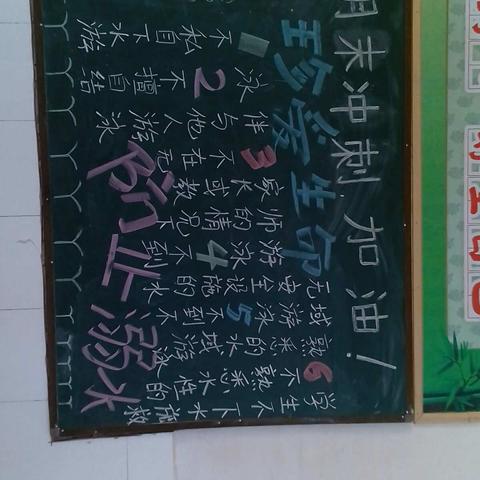 期末冲刺,加油!
珍爱生命
1 不私自下水游
泳 2 不擅自结
伴与他人游泳
3 不在无
家长或教
师的情况下
游泳 4 不到
无安全设施的水
域游泳 5 不到不
熟悉的水域游泳
6 不熟悉水性的
学生不下水施救
防止溺水